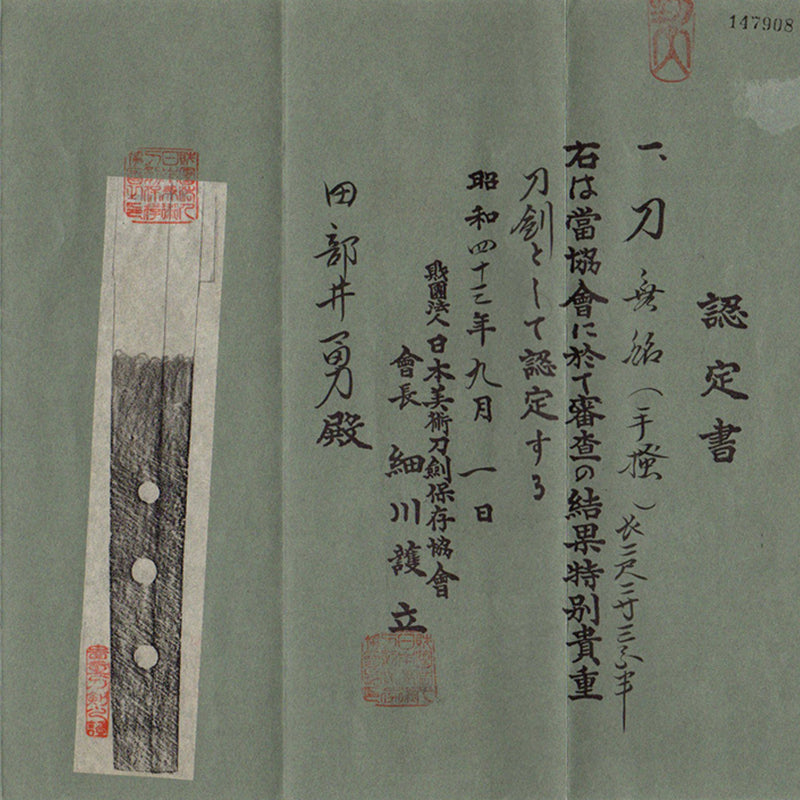 147908
認定書
一、刀 無銘(手掻)長二尺二寸三分半
右は當協會に於て審査の結果特別貴重
刀劍として認定する
昭和四十三年九月一日
財團法人日本美術刀劍保存協會
會長 細川護立
田部井勇殿